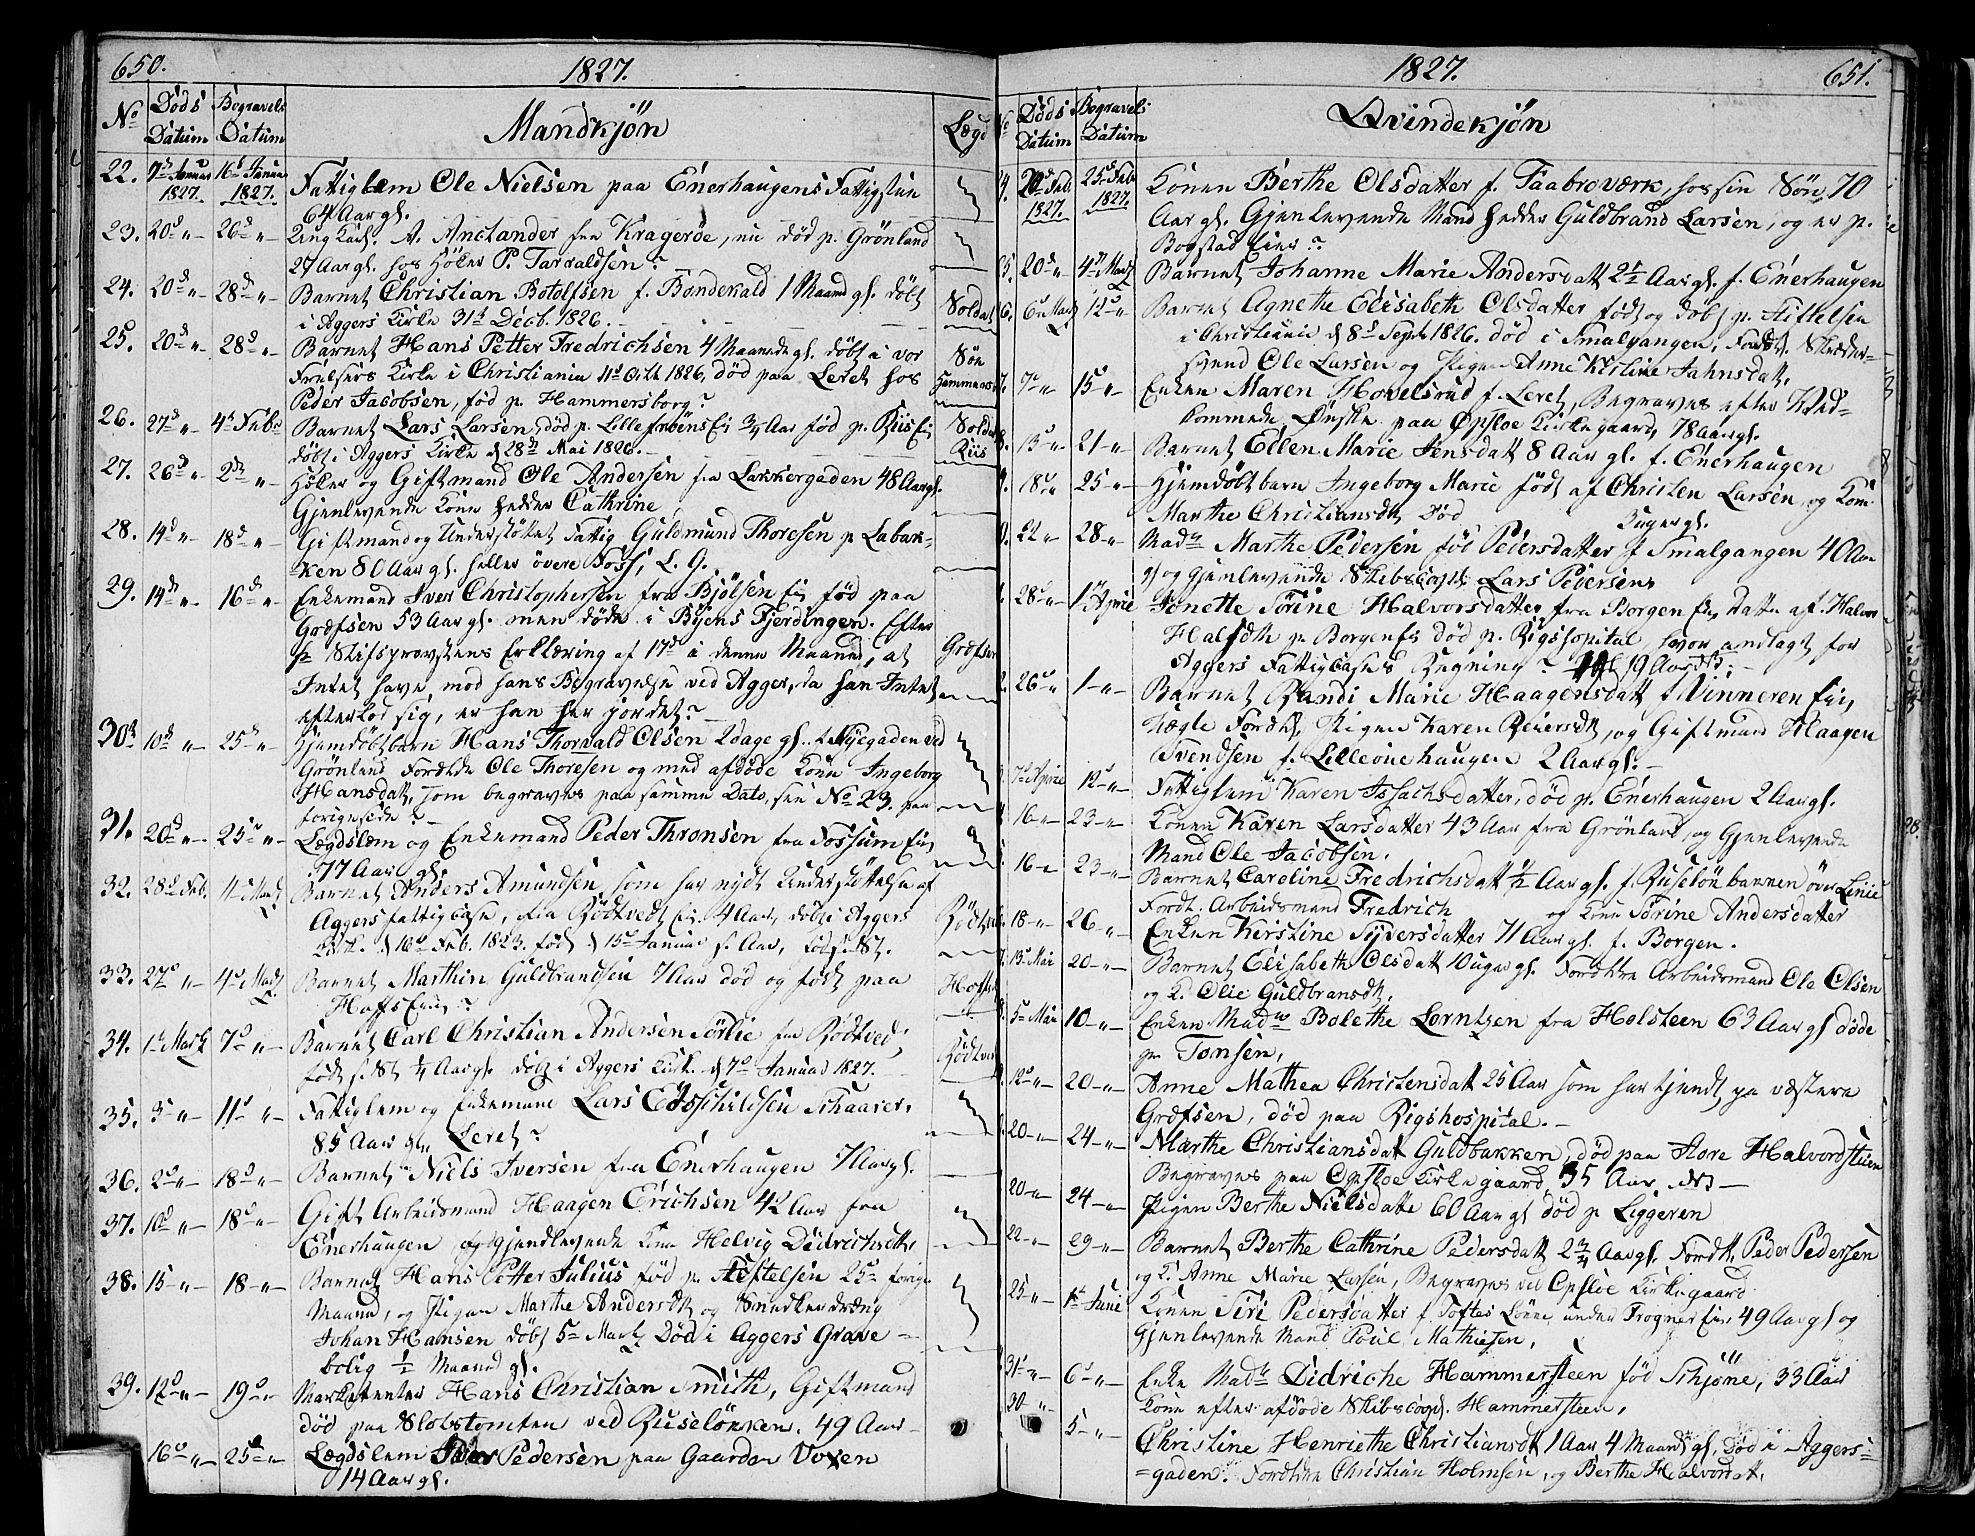 650.
1827.
No Døds Datum Begravels Datum Mandkjön Lægd
22. 7d Januar 1827. 16d Januar 1827. Fattiglem Ole Nielsen paa Enerhaugens Fattigstue
64 Aar gl.
23. 20d "- 26d "- Ung Karl. A. Anclander fra Kragerøe, nu død p. Grönland
27 Aar gl. hos Høker P. Tarraldsen?
24. 20d "- 28d "- Barnet Christian Botolfsen f. Bondekald 1 Maand gl. døbt Soldat
i Aggers Kirke 31d Decb. 1826.
25. 20d "- 28d "- Barnet Hans Petter Fredrichsen 4 Maaneder gl. døbt i vor Søn
Frelsers Kirke i Christiania 11d Octb 1826, død paa Leret hos
Peder Jacobsen, fød p. Hammersborg?
26. 27d "- 4d Febr Barnet Lars Larsen, død p. Lille 3/4 Aar fød p. Riis Ei Soldat
døbt i Aggers Kirke d 28d Mai 1826. Riis
27. 26d "- 2d "- Høker og Giftmand Ole Andersen fra Lakkergaden 48 Aar gl.
Gjenlevende Kone hedder Cathrine
28. 14d "- 18d "- Giftmand og Understøttet Fattig Guldmund Thoresen p Labak-
ken 80 Aar gl. heller övere Foss, L. G.
29. 14d "- 16d "- Enkemand Iver Christophersen fra Bjölsen Ei fød paa
Grefsen 53 Aar gl. men døde i Byens Fjerdingen. Efter
Stifsprovstens Erklæring af 17d i denne Maaned, at Grefsen
Intet have mod hans Begravelse ved Agger, da han Intet
efterlod sig, er han her jordet?
30d 10d "- 25d "- Hjemdøbt barn Hans Thorvald Olsen 2 dage gl. Nyegaden ved
Grönland Forældre Ole Thoresen og med afdøde Kone Ingeborg
Hansdat, som begraves paa samme Dato, see No 23. paa
forige side?
31. 20d "- 25d "- Lægdslem og Enkemand Peder Thronsen fra Fossum Ei,
77 Aar gl.
32. 28d Feb. 4d Martz Barnet Anders Amundsen som har nydt Understøttelse af
Aggers fattigcasse, fra Rødtvedt Ei. 4 Aar, døbt i Aggers Rødtvedt
Kirke d 16d Feb. 1823. fød d 15d Januar s. Aar,
33. 27d "- 4d Martz Barnet Marthin Guldbrandsen 7 Aar død og født paa
Hoffs Eier?
34. 1d Martz 7d "- Barnet Carl Christian Andersen Sörlie fra Rødtved,
født 1/4 Aar gl. døbt i Aggers Kirk. d 7d Januar 1827. Rødtvedt
35. 3d "- 11d "- Fattiglem og Enkemand Lars Schaarer,
85 Aar gl. Leret?
36. 2d "- 18d "- Barnet Niels Iversen fra Enerhaugen 7 Aar gl.
37. 10d "- 18d "- Gift Arbeidsmand Haagen Erichsen 42 Aar fra
Enerhaugen, og Gjenlevende Kone Helvig Didrichsdtr,
38. 15-"- 18-"- Barnet Hans Petter Julius fød p. Stiftelsen 25d forige
Maaned, og Pigen Marthe Andersdtr og Snedkerdræng
Johan Hansen døbt 5d Martz Død i Aggers Grave-
bolig 1/2 Maaned gl.
39. 12d "- 19d "- Marketenter Hans Christian Smith, Giftmand
død paa Slotstomten ved Ruselökken. 49 Aar
16d "- 25d "- Lægdslem Peder Pedersen paa Gaarden Voxen
14 Aar gl.
1827.
651.
No Døds Datum Begravels Datum Qvindekjön
20d Feb. 1827. 25d Feb 1827. Konen Berthe Olsdatter f. Taabroværk, hos sin Søn, 70
Aar gl. Gjenlevende Mand hedder Guldbrand Larsen, og er p.
Bogstad Eier?
5. 20d "- 4d Martz Barnet Johanne Marie Andersdatt 2 1/2 Aar gl. f. Enerhaugen
6. 6d Martz 12d "- Barnet Agnethe Elisabeth Olsdatter født og døbt p. Stiftelsen
i Christiania d 8d Septb 1826. død i Smalgangen, Foræld. Skræder-
svend Ole Larsen og Pigen Anne Kistine Jahnsdatt,
7. 7d "- 15d "- Enken Maren Hovelsrud f. Leret, Begraves efter Ved-
kommende Ønske paa Opsloe Kirkegaard, 78 Aar gl.
8. 13d "- 21-"- Barnet Ellen Marie Jensdatt 8 Aar gl. f. Enerhaugen
9. 18d "- 25-"- Hjemdøbt barn Ingeborg Marie født af Christen Larsen, og Kone
Marthe Christiansdtr Død Uger gl.
22 "- 28-"- Mad. Marthe Pedersen fød Pedersdatter f Smalgangen 40 Aar
gl og gjenlevende Skibscapt Lars Pedersen
28d "- 1d April Jonette Sørine Halvorsdatter fra Borgen Ei, Datter af Halvor
Halfdtr p. Borgen Ei død p. Rigshospital hvor indlagt for
Aggers Fattigcasses Regning? 19 Aar
26d "- 1-"- Barnet Randi Marie Haagensdatt f Vinneren Ei,
Uægte Foræld. Pigen Karen Reiersdtr, og Giftmand Haagen
Svendsen f. Lilleonehaugen 2 Aar gl.
7d April 12d "- Fattiglem Karen Issachsdatter, død p. Enerhaugen 2 Aar gl.
16-"- 23-"- Konen Karen Larsdatter 43 Aar fra Grönland, og Gjenlevende
Mand Ole Jacobsen.
16-" 23-"- Barnet Caroline Fredrichsdatt 1/2 Aar gl. f. Ruselönbannen över Linie
Foræld. Arbeidsmand Fredrich og Kone Sörine Andersdatter
18-"- 26 "- Enken Kerstine Sydersdatter 71 Aar gl. f. Borgen.
13d Mai 20-"- Barnet Elisabeth Olsdatt 10 uger gl. Forældre Arbeidsmand Ole Olsen
og K. Olie Guldbransdtr.
5d Mai 10-"- Enken Mad. Bolethe Lorntzen fra Holsteen 63 Aar gl døde
p. Tonsen,
12d "- 20-"- Anne Mathea Christensdatt 25 Aar som har tjendt pa væstere
Grefsen, død paa Rigshospital.
20-"- 24-"- Marthe Christiansdat Guldbakken, død paa Store Halvordsteen
Begraves paa Opsloe Kirkegaard, 35 Aar
20-"- 24-"- Pigen Berthe Nielsdatte 60 Aar gl død p Liggeren
22-"- 29-"- Barnet Berthe Cathrine Pedersdatt 2 3/4 Aar gl. Foræld. Peder Pedersen
og K. Anne Marie Larsen, Begraves ved Opsloe Kirkegaard
25-"- 1d Juni Konen Siri Pedersdatter f. Toftes Lönne under Frogner Ei. 49 Aar gl og
Gjenlevende Mand Poul Mathiesen.
31d "- 6d "- Enke Mad. Didriche Hammersteen fød Schjöne, 33 Aar
Kone efter afdøde Skibscapt. Hammersteen,
30 "- 5-"- Christine Henriethe Christiansdtr 1 Aar 4 Maaned gl. død i Aggers-
=gaden. Forældre Christian Holmsen, og Berthe Halvordatt.